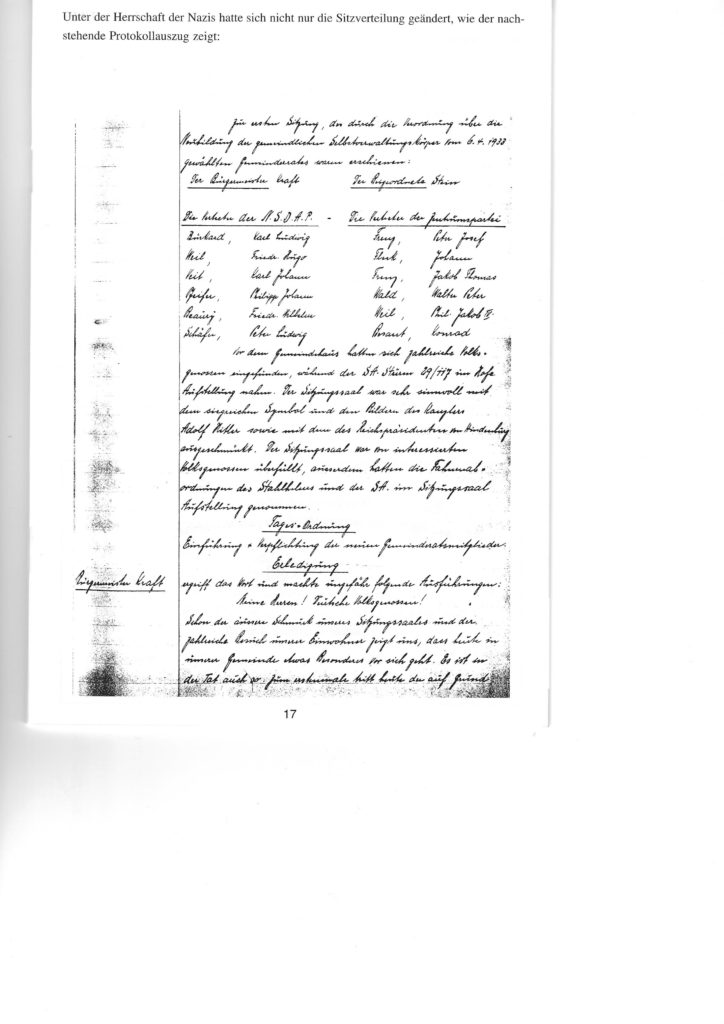 Unter der Herrschaft der Nazis hatte sich nicht nur die Sitzverteilung geändert, wie der nach-
stehende Protokollauszug zeigt:
Zur ersten Sitzung, des durch die Verordnung über die
Neubildung der gemeindlichen Selbstverwaltungskörper vom 6.4.1933
gewählten Gemeinderates waren erschienen:
Der Bürgermeister Kraft Der Beigeordnete Stein
Die Vertreter der N.S.D.A.P. - Die Vertreter der Zentrumspartei
Karl Ludwig Peter Josef
Weil, Friedr. Hugo Johann
Veit, Karl Johann Jakob Thomas
Pfeifer, Philipp Johann Wald, Walter Peter
Friedr. Wilhelm Weil, Phil. Jakob
Schäfer, Peter Ludwig Konrad
Vor dem Gemeindehaus hatten sich zahlreiche Volks-
genossen eingefunden, während der SA Sturm 29/117 im Hofe
Aufstellung nahm. Der Sitzungssaal war sehr sinnvoll mit
dem siegreichen Symbol und den Bildern des Kanzlers
Adolf Hitler sowie mit dem des Reichspräsidenten von Hindenburg
ausgeschmückt. Der Sitzungssaal war von interessierten
Volksgenossen überfüllt, ausserdem hatten die Fahnenab-
ordnungen des Stahlhelms und der SA. im Sitzungssaal
Aufstellung genommen.
Tages-Ordnung
Einführung + Verpflichtung der neuen Gemeinderatsmitglieder.
Erledigung
Bürgermeister Kraft ergriff das Wort und machte ungefähr folgende Ausführungen:
Meine Herren! Deutsche Volksgenossen!
Schon der äussere Schmuck unseres Sitzungssaales und der
zahlreiche Besuch unserer Einwohner zeigt uns, dass heute in
unserer Gemeinde etwas Besonderes vor sich geht. Es ist in
der Tat auch so. Zum erstenmale tritt heute der auf Grund
17